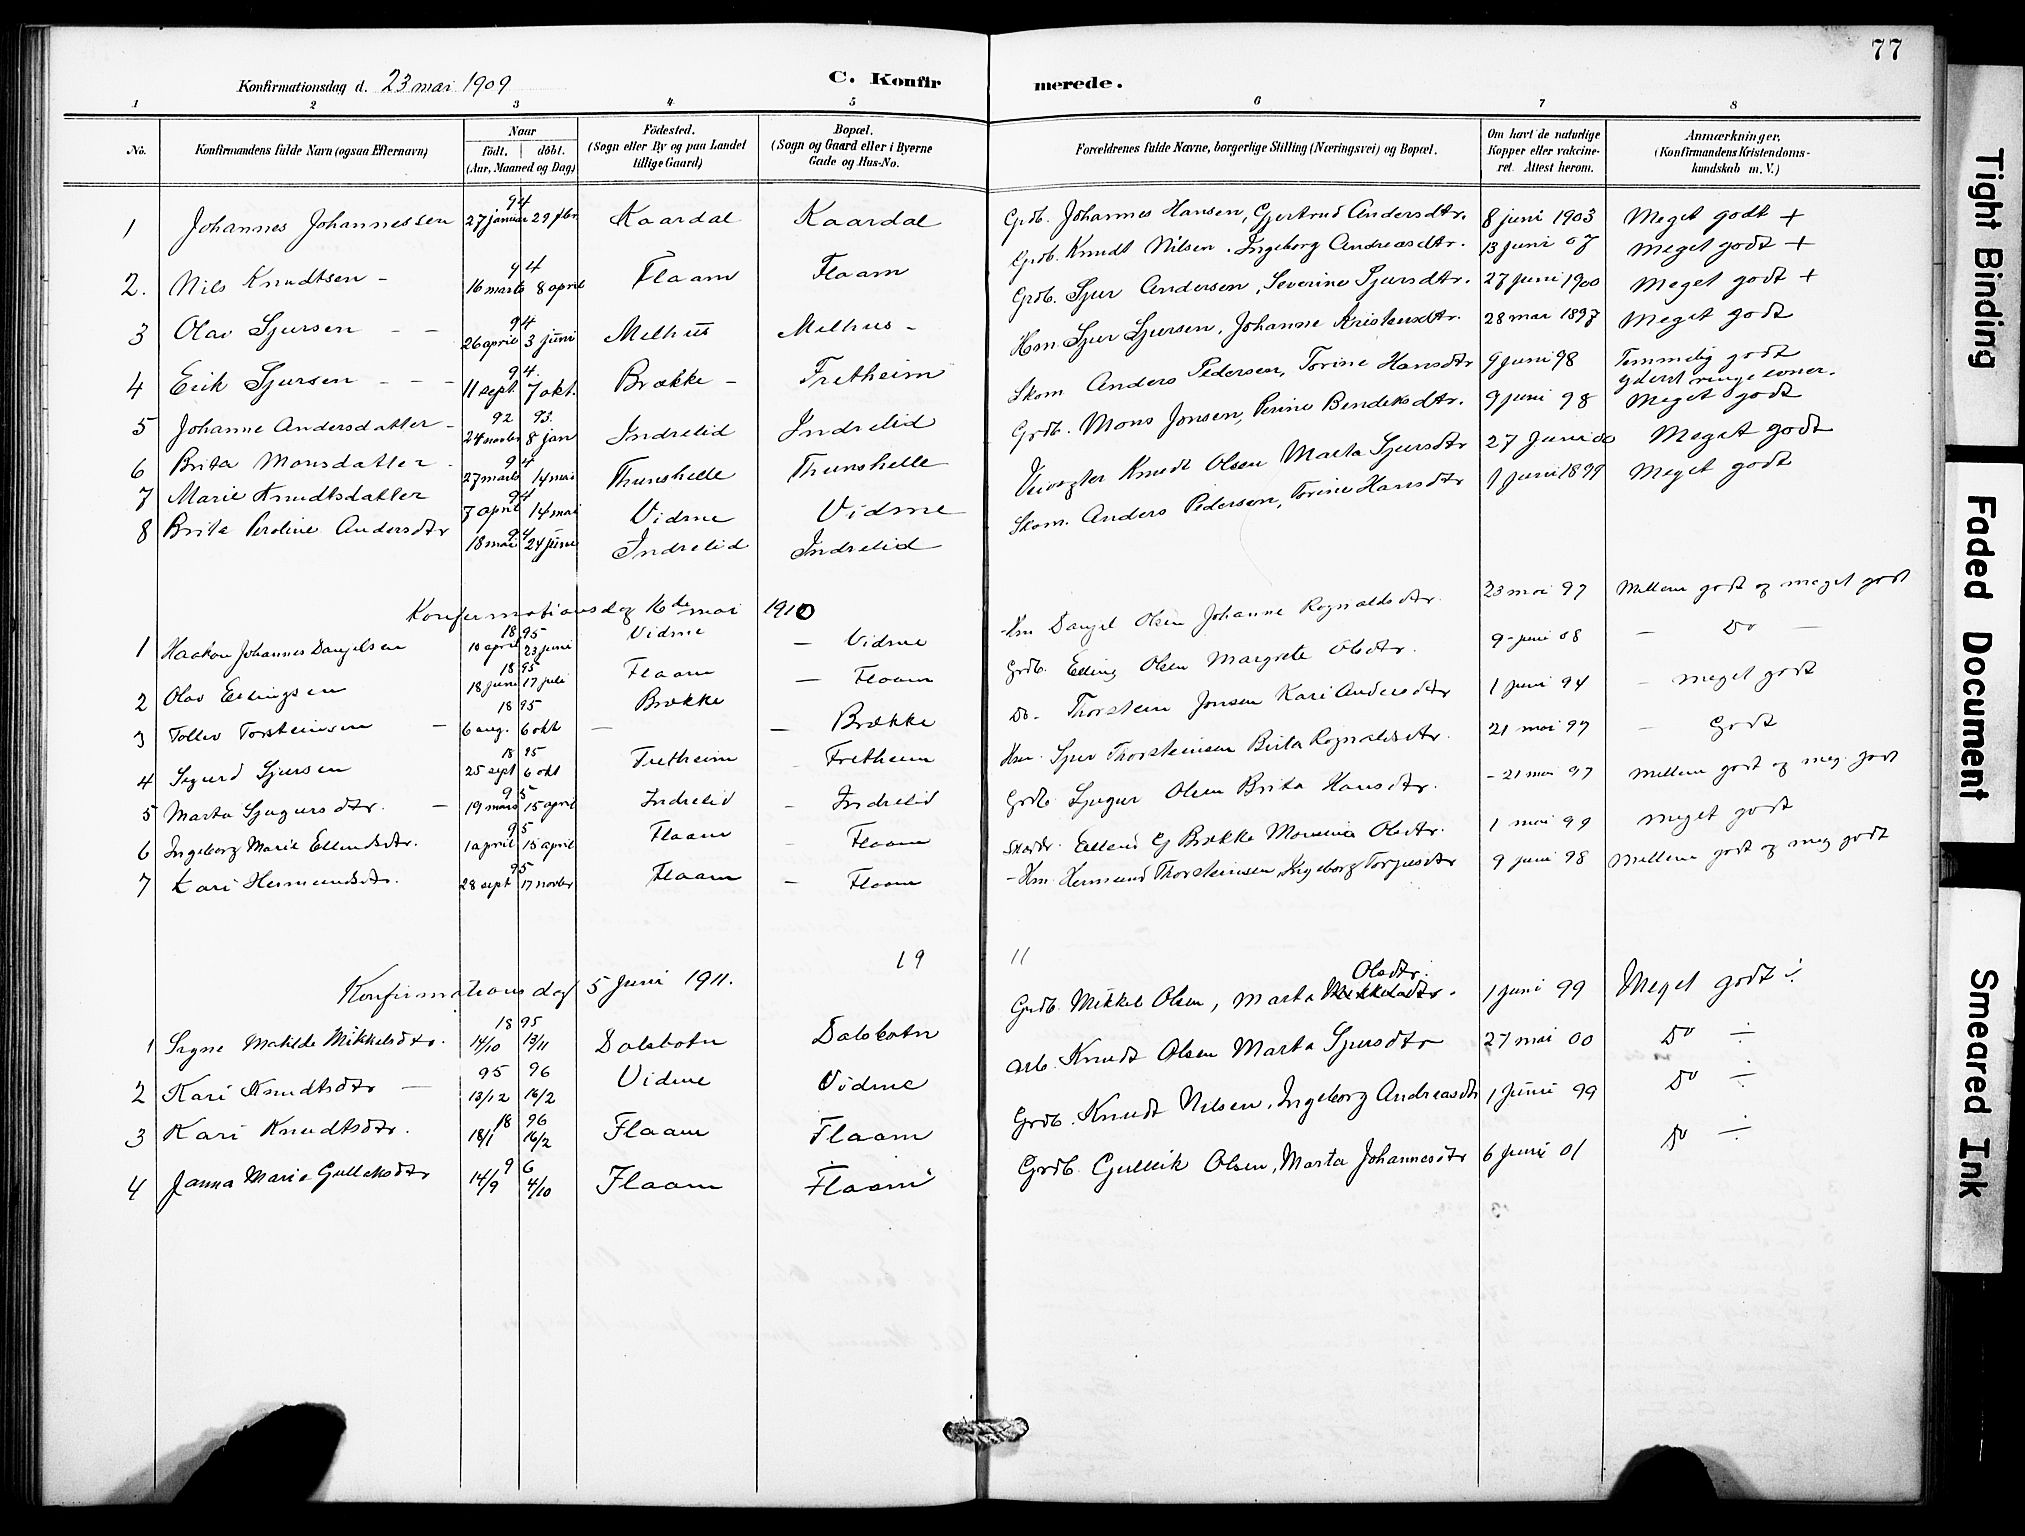 77
Konfirmationsdag d. 23 mai 1909
C. Konfirmerede.
1 2 3 4 5 6 7 8
No. Konfirmandens fulde Navn (ogsaa Efternavn) Naar födt. döbt. (Aar, Maaned og Dag) Födested. (Sogn eller By og paa Landet tillige Gaard) Bopæl. (Sogn og Gaard eller i Byerne Gade og Hus-No. Forældrenes fulde Navne, borgerlige Stilling (Næringsvei) og Bopæl. Om havt de naturlige Kopper eller vakcineret. Attest herom. Anmærkninger. (Konfirmandens Kristendomskundskab m. V.)
1 Johannes Johannessen 94 27 januar 29 fbr Kaardal Kaardal Grdb. Johannes Hansen, Gjertrud Andersdtr. 8 juni 1903 Meget godt +
2. Nils Knudtsen - 94 16 marts 8 april Flaam Flaam Grdb. Knudt Nilsen. Ingeborg Andreasdtr. 13 juni 07 Meget godt +
3 Olav Sjursen - - 94 26 april 3 juni Melhus Melhus - Grdb. Sjur Andersen, Severine Sjursdtr. 27 juni 1900 Meget godt +
4 Erik Sjursen - - - 94. 11 sept 7 okt. Brække - Fretheim Hm. Sjur Sjursen, Johanne Kristensdtr. 28 mai 1897 Meget godt
5 Johanne Andersdatter - 92 93. 24 novbr 8 jan Indrelid Indrelid Skom. Anders Pedersen, Torine Hansdtr 9 juni 98 Temmelig godt yderst ringe evner.
6 Brita Monsdatter - 94 27 marts 14 mai Thunshelle Thunshelle Grdb. Mons Jonsen, Perine Bendeksdtr. 9 juni 98 Meget godt
7 Marie Knudtsdatter 94 7 april 14 mai Vidme Vidme Veivogter Knudt Olsen Marta Sjursdtr 27 Juni 00 Meget godt
8 Brita Peroline Andersdtr 94 18 mai 24 june Indrelid Indrelid Skom. Anders Pedersen, Torine Hansdtr 1 juni 1899 Meget godt
Konfirmationsdag 16de mai 1910
1 Haakon Johannes Danjelsen 1895 10 april 23 juni Vidme - Vidme Hm Danjel Olsen Johanne Rognaldsdtr. 23 mai 97 Mellem godt og meget godt
2 Olav Ellingsen 1895 18 juni 17 juli Flaam - Flaam Grdb. Elling Olsen Margrete Olsdtr. 9 - juni 08 - Do -
3 Tollev Torsteinsen - 1895 6 aug. 6 okt - Brække - Brække Do. Thorstein Jonsen Kari Andersdtr 1 juni 94 - Meget godt
4 Sigurd Sjursen 1895 25 sept 6 okt Fretheim Fretheim Hm. Sjur Thorsteinsen Brita Rognaldsdtr. 21 mai 97 - Godt
5 Marta Sjugursdtr. - 95 19 mars 15 april Indrelid - Indrelid Grdb. Sjugur Olsen Brita Hansdtr. - 21 mai 97 Mellem godt og meg. godt
6 Ingeborg Marie Ellendsdtr. 95 1 april 15 april Flaam - Flaam Ellend G Brække Monsine Olsdtr. 1 mai 99 Meget godt
7 Kari Hermundsdtr. 95 28 sept 17 novbr Flaam - Flaam - Hm. Hermund Thorsteinsen, Ingeborg Torjusdtr 9 juni 98 Mellem godt og meg godt
19 11
Konfirmationsdag 5 Juni 1911.
1 Signe Matilde Mikkelsdtr. 1895 14/10 13/11 Dalsbotn Dalsbotn Grdb. Mikkel Olsen, Marta Olsdtr. Mikkelsdtr. 1 juni 99 Meget godt ÷
2 Kari Knudtsdtr - 95 96 13/12 16/2 Vidme Vidme Arb. Knudt Olsen Marta Sjursdtr 27 mai 00 Do ÷
3 Kari Knudtsdtr. 1896 18/1 16/2 Flaam Flaam Grdb. Knudt Nilsen, Ingeborg Andreasdtr 1 juni 99 Do ÷
4 Janna Marie Gulleksdtr 96 14/9 4/10 Flaam Flaam Grdb. Gullik Olsen, Marta Johannesdtr 6 juni 01 Do ÷
Tight Binding
Faded Document
Smeared Ink